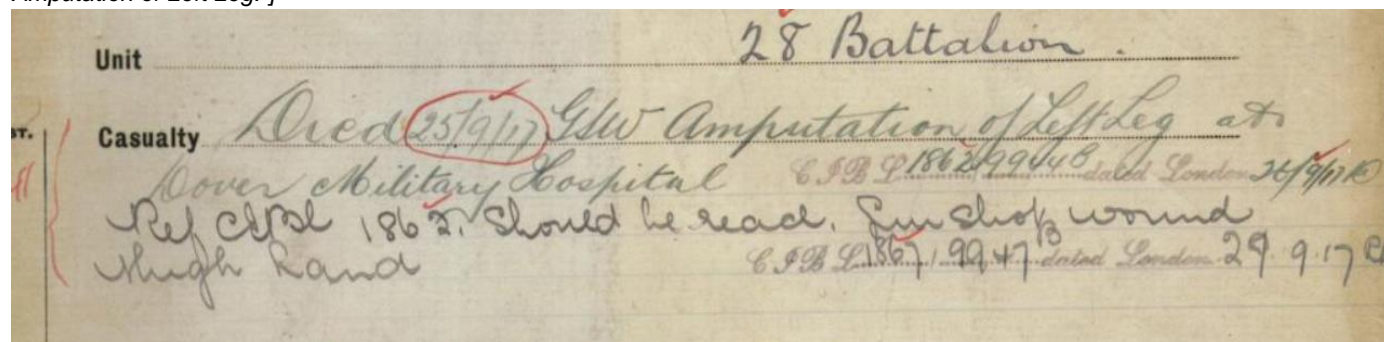 Amputation of Left Leg. ]
Unit 28 Battalion.
Casualty Died 25/9/17 GSW Amputation of Left Leg at
Dover Military Hospital C I B L 1862 9944B dated London 26/9/17
Ref CIBL 1862. Should be read. Gun Shot wound
thigh hand C I B L 1867, 9947B dated London 29.9.17
ST.